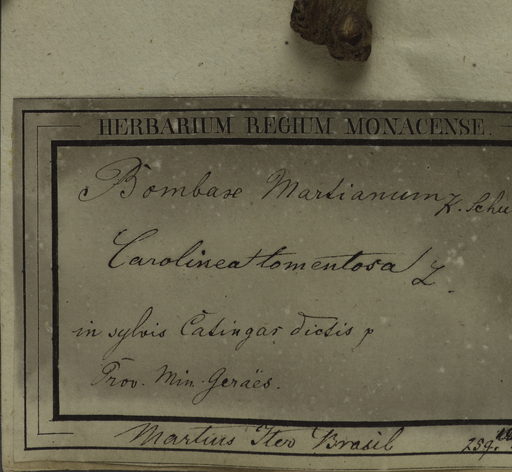 HERBARIUM REGIUM MONACENSE.
Bombax Martianum K. Schu
Carolinea tomentosa Z.
in sylvis Catingas dictis p
Prov. Min. Geraës.
Martius Iter Brasil 259.